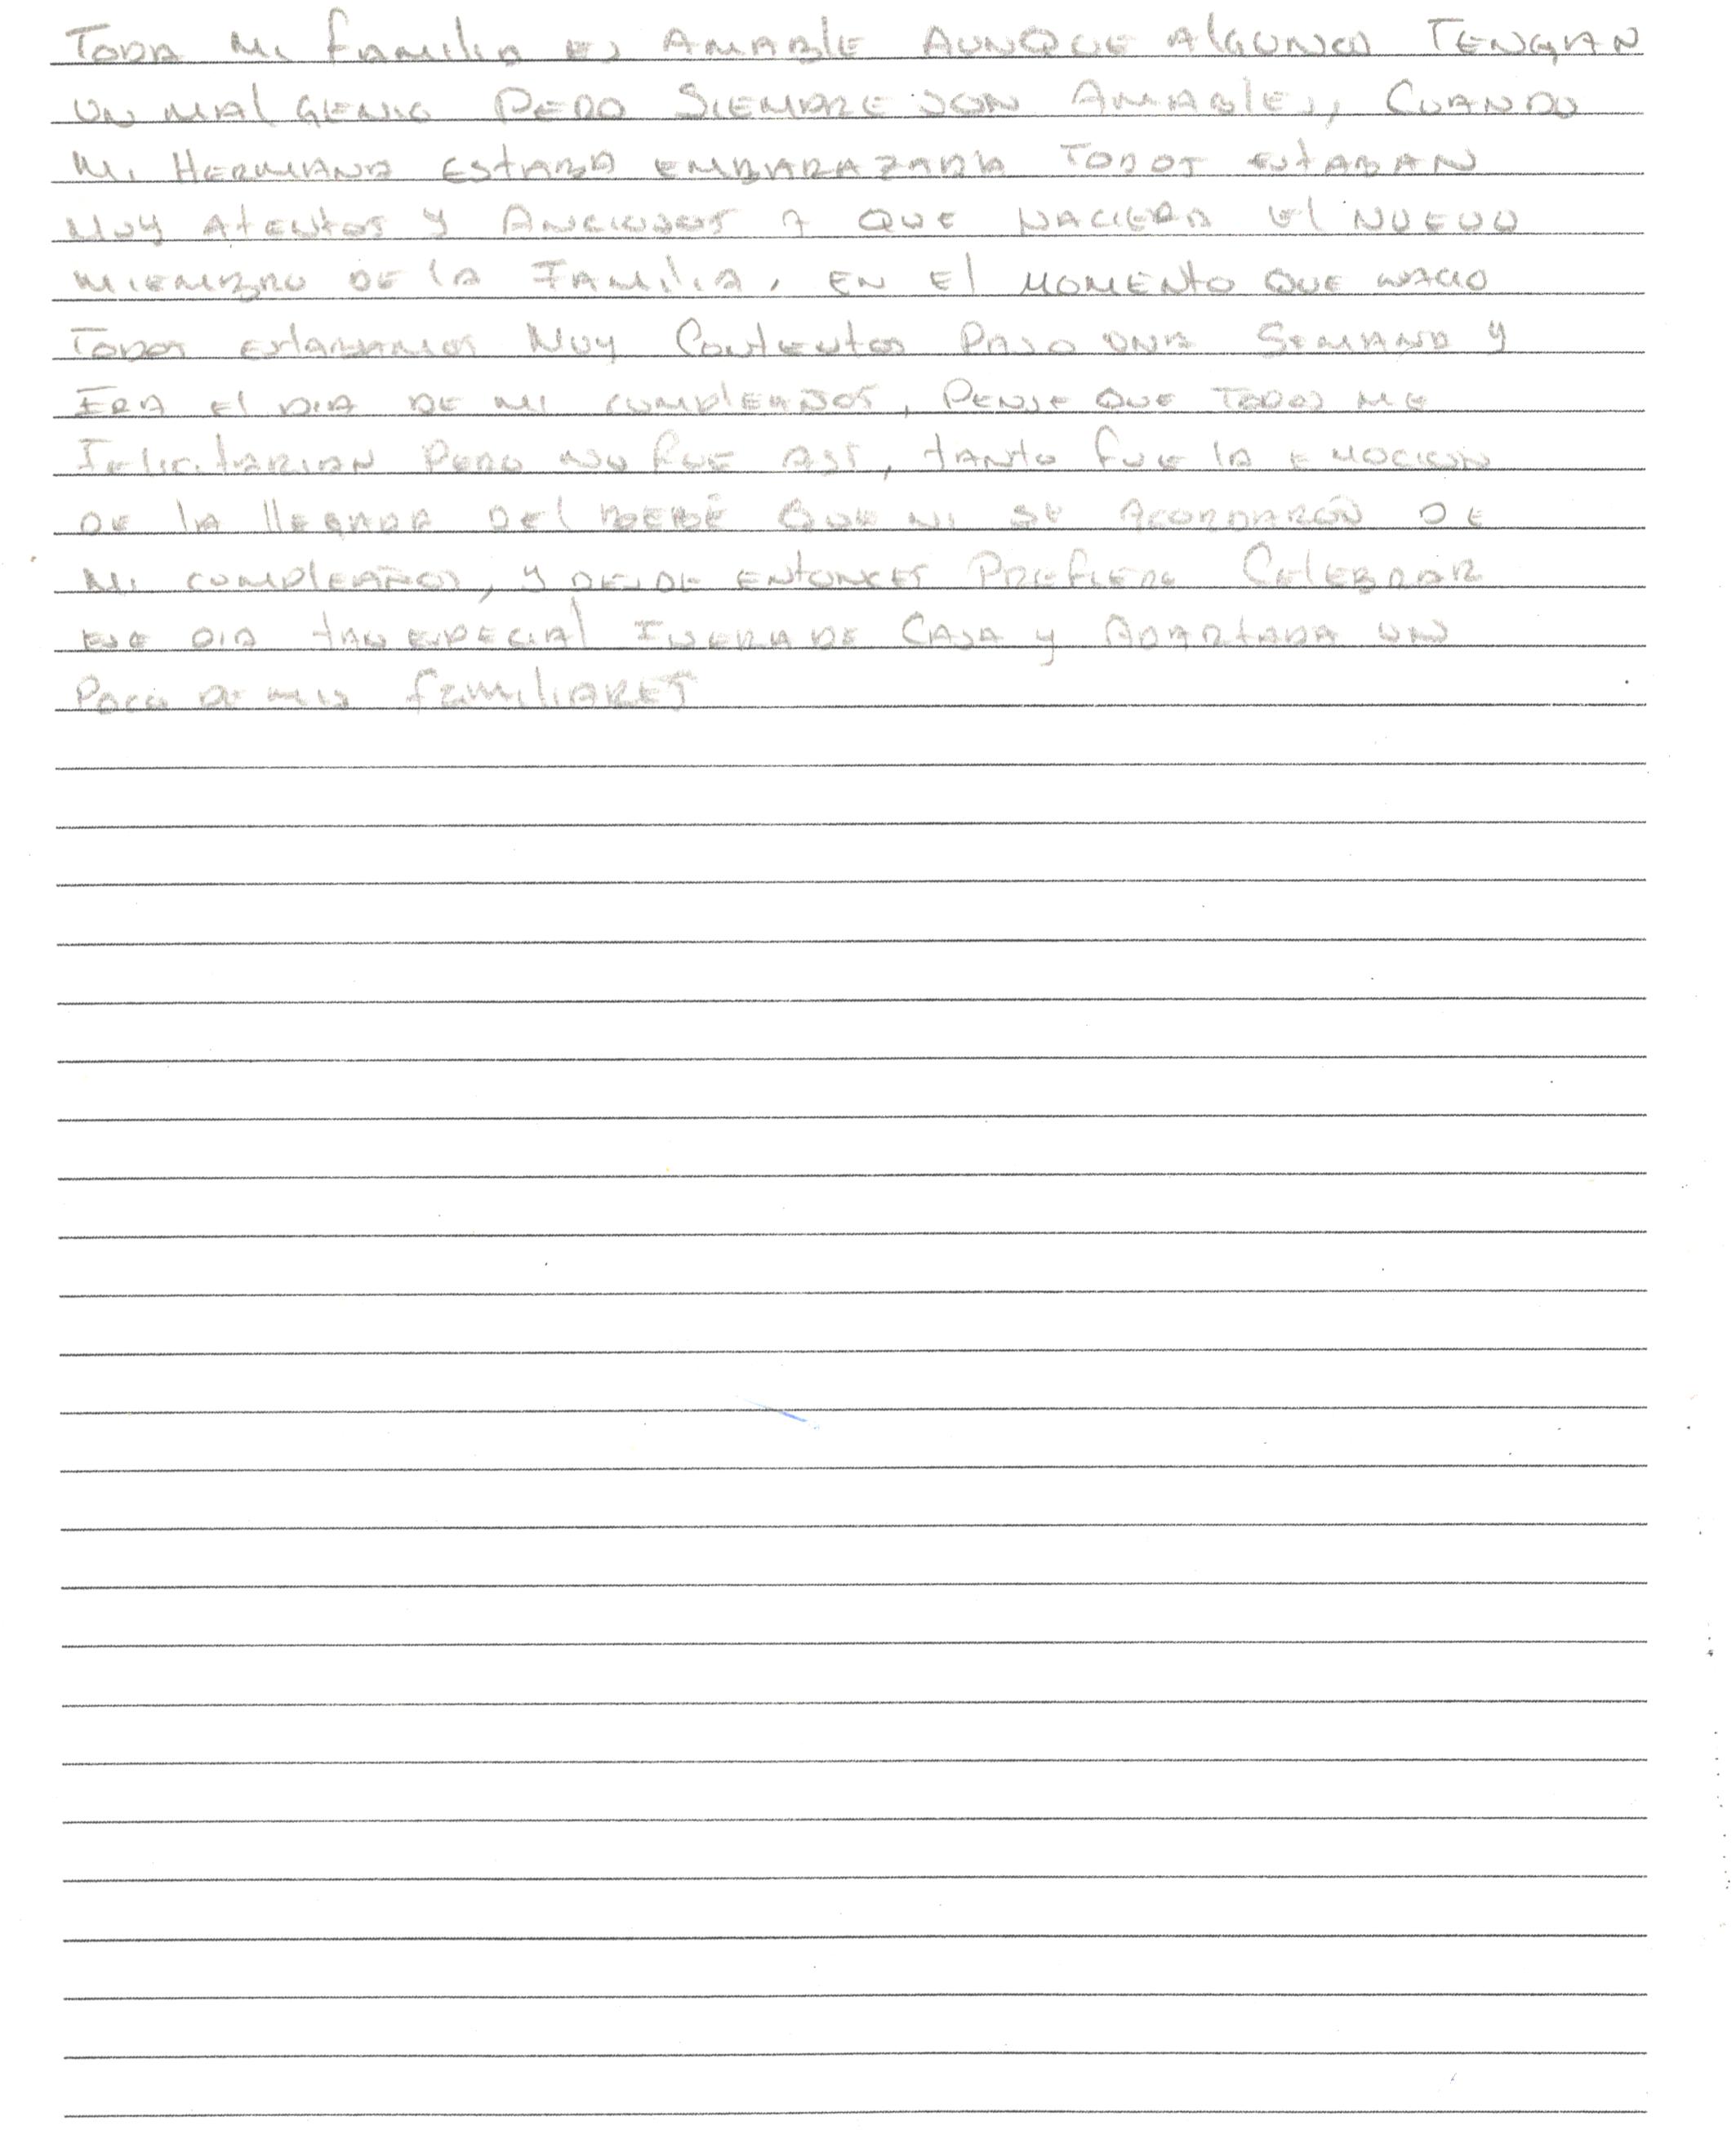 TODA Mi fAMiliA ES AMABlE AUNQUE AlGUNOS TENGAN
UN MAl GENiO PERO SiEMPRE SON AMABlES, CUANDO
Mi HERMANA EStABA EMBARAZADA TODOS EStABAN
MUY AtENtOS Y ANCiOSOS A QUE NACiERA El NUEVO
MiEMBRO DE lA FAMiliA. EN El MOMENtO QUE NACiO
TODOS EStABAMOS MUY CONtENtOS PASO UNA SEMANA Y
ERA El DiA DE Mi CUMPlEAÑOS, PENSE QUE TODOS ME
FEliCitARiAN PERO NO fUE ASI, tANtO fUE lA EMOCiON
DE lA llEGADA DEl BEBÉ QUE Ni SE ACORDARÓN DE
Mi CUMPlEAÑOS, Y DESDE ENtONCES PREFiERO CElEBRAR
ESE DiA tAN ESPECiAl FUERA DE CASA y APARtADA UN
POCO DE MiS fAMiliARES